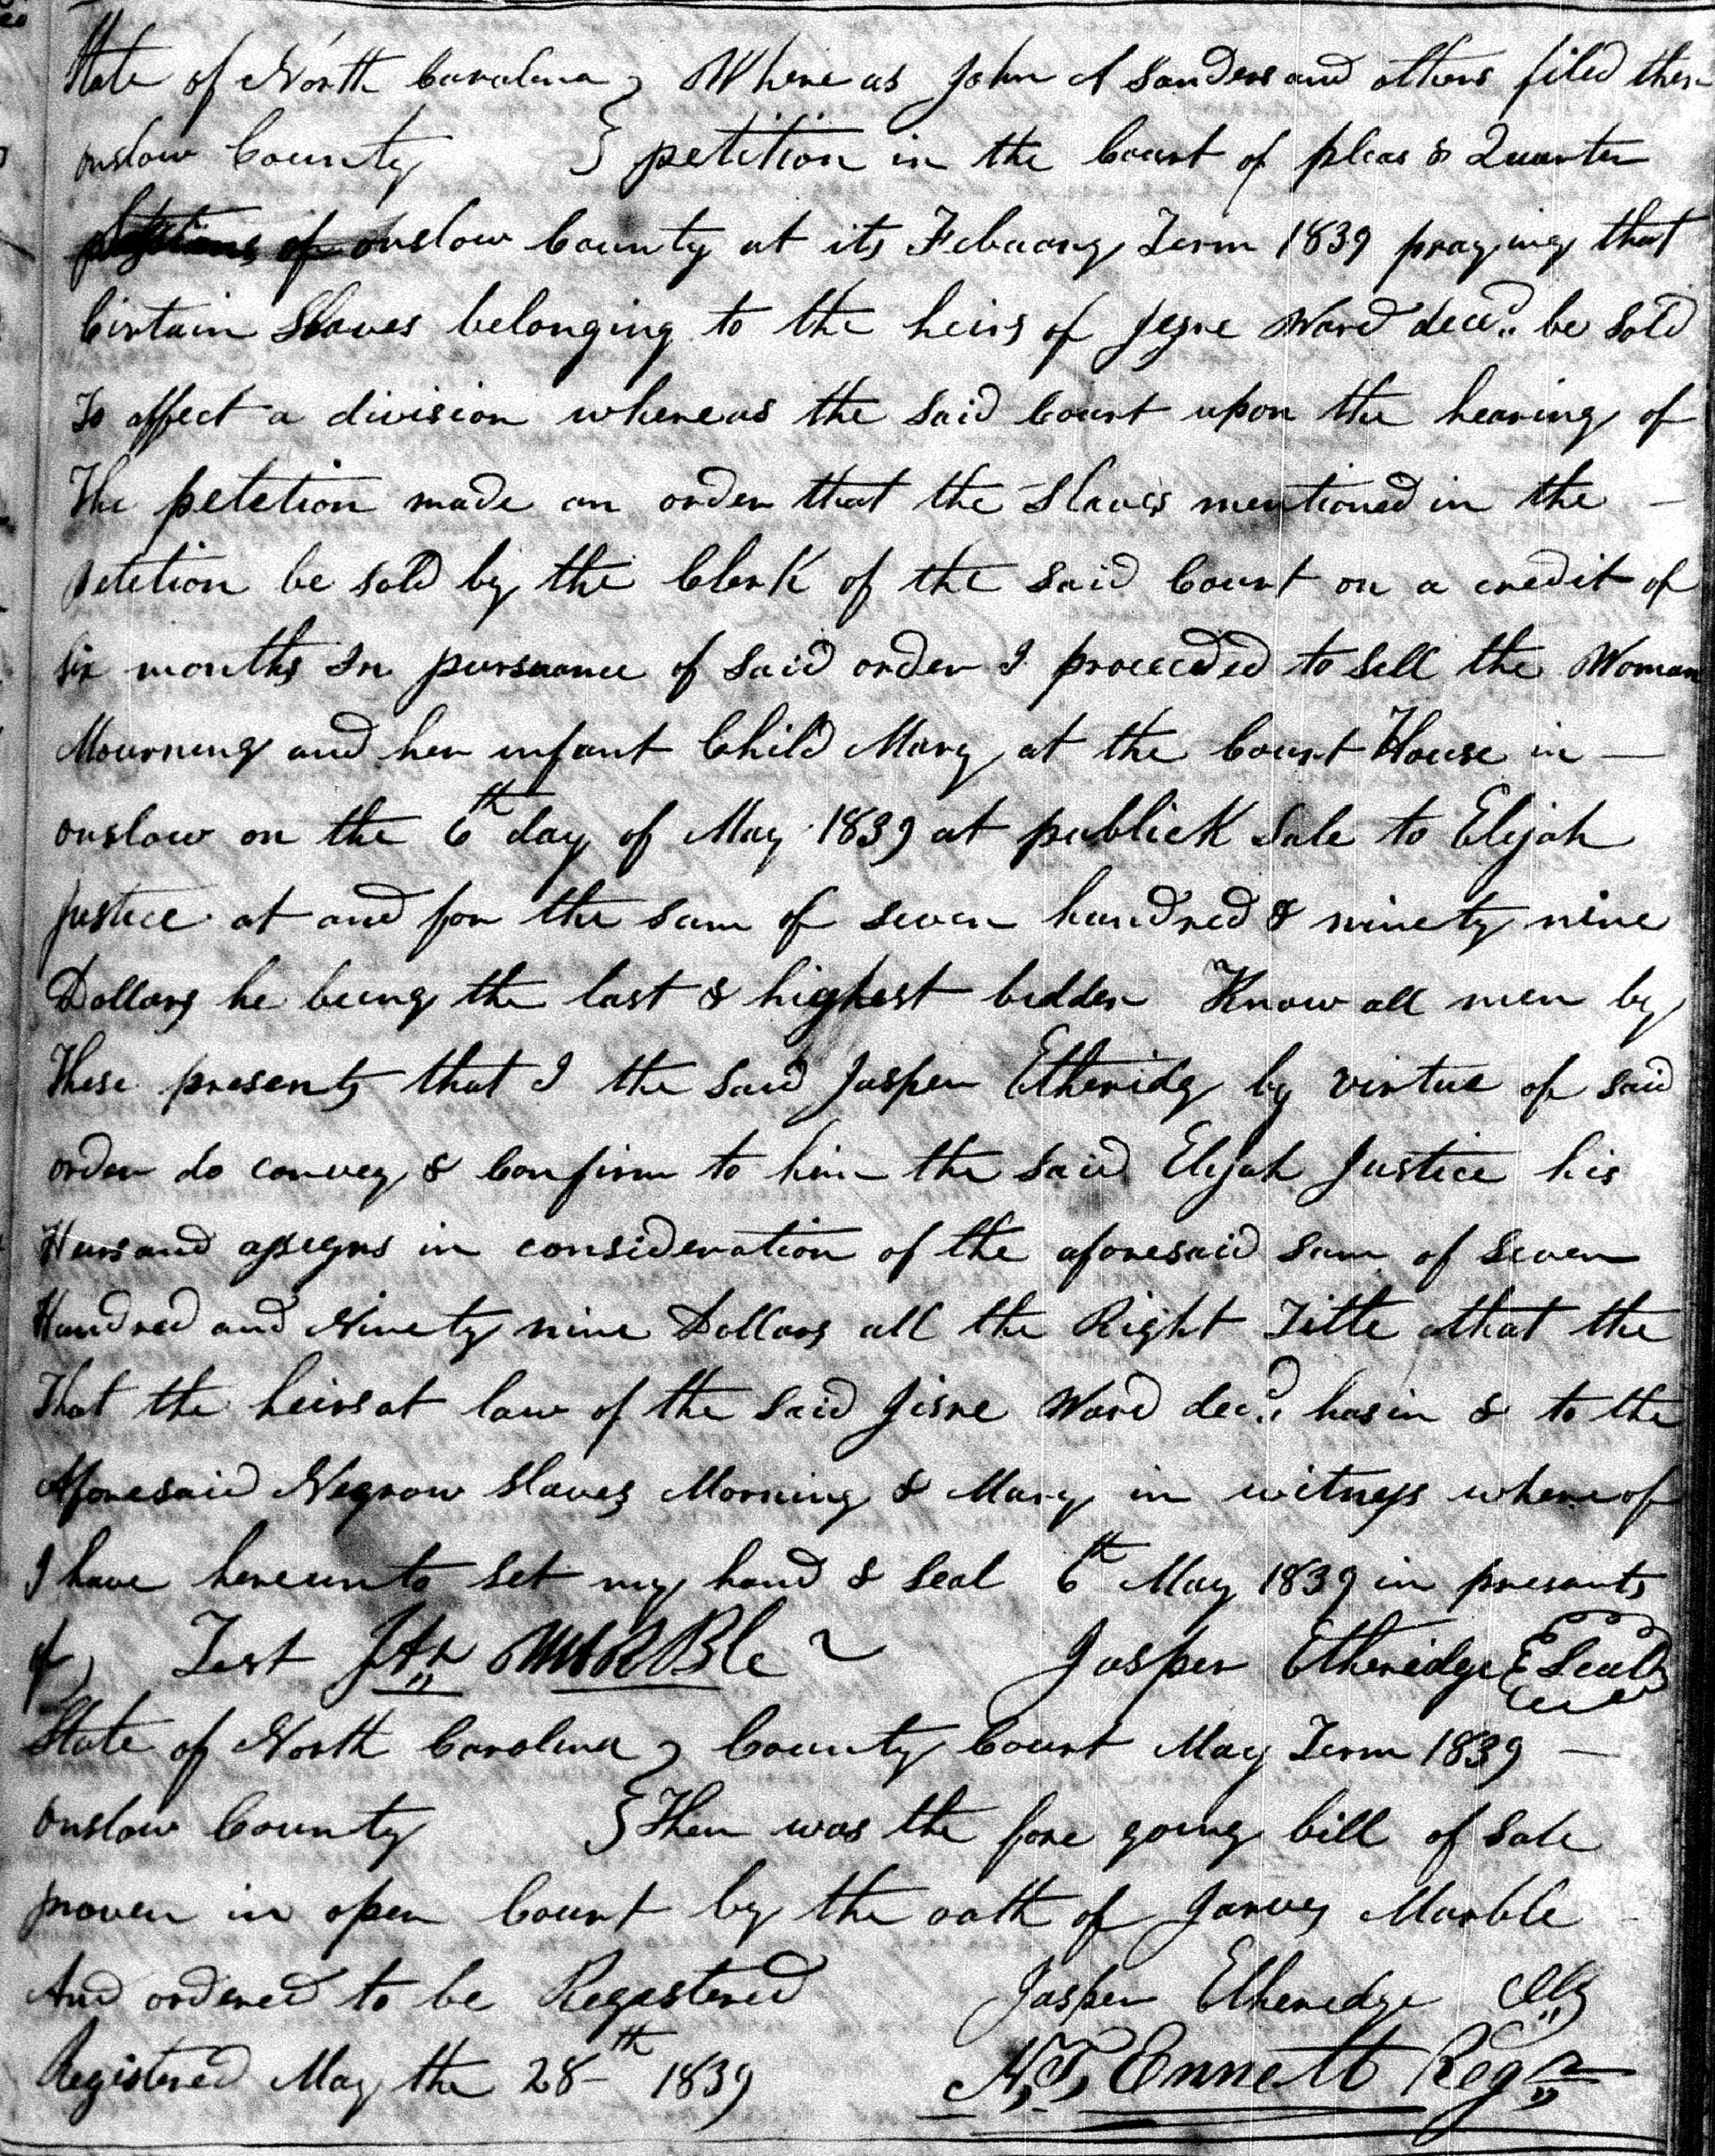 State of North Carolina } Whereas John A Sanders and others filed their
onslow County } petition in the Court of pleas & Quarter
of onslow County at its Febuary Term 1839 praying that
Cirtain Slaves belonging to the heirs of Jesse Ward decd. be Sold
To affect a division whereas the Said Court upon the hearing of
The petetion made an order that the Slaves mentioned in the -
petetion be Sold by the Clerk of the Said Court on a credit of
Six months In pursuance of Said order I proceeded to Sell the Woman
Mourning and her infant Child Mary at the Court House in -
onslow on the 6th day of May 1839 at publick Sale to Elijah
Justice at and for the Sum of Seven hundred & ninety nine
Dollars he being the last & highest bidder Know all men by
These presents that I the Said Jasper Etheridg by virtue of Said
order do convey & Confirm to him the Said Elijah Justice his
Heirs and assigns in consideration of the aforesaid Sum of Seven
Hundred and Ninety nine Dollars all the Right Title that the
That the heirs at law of the Said Jesse Ward decd. has in & to the
Aforesaid Negrow Slaves Morning & Mary in witness whereof
I have hereunto Set my hand & Seal 6th May 1839 in presents
of Test Jasper Etheridge Seal
State of North Carolina } County Court May Term 1839 -
Onslow County } Then was the fore going bill of Sale
proven in open Court by the oath of Jarvey Marble
And ordered to be Registered Jasper Etheredge Clk
Registered May the 28th 1839 N.T. Ennett Regr